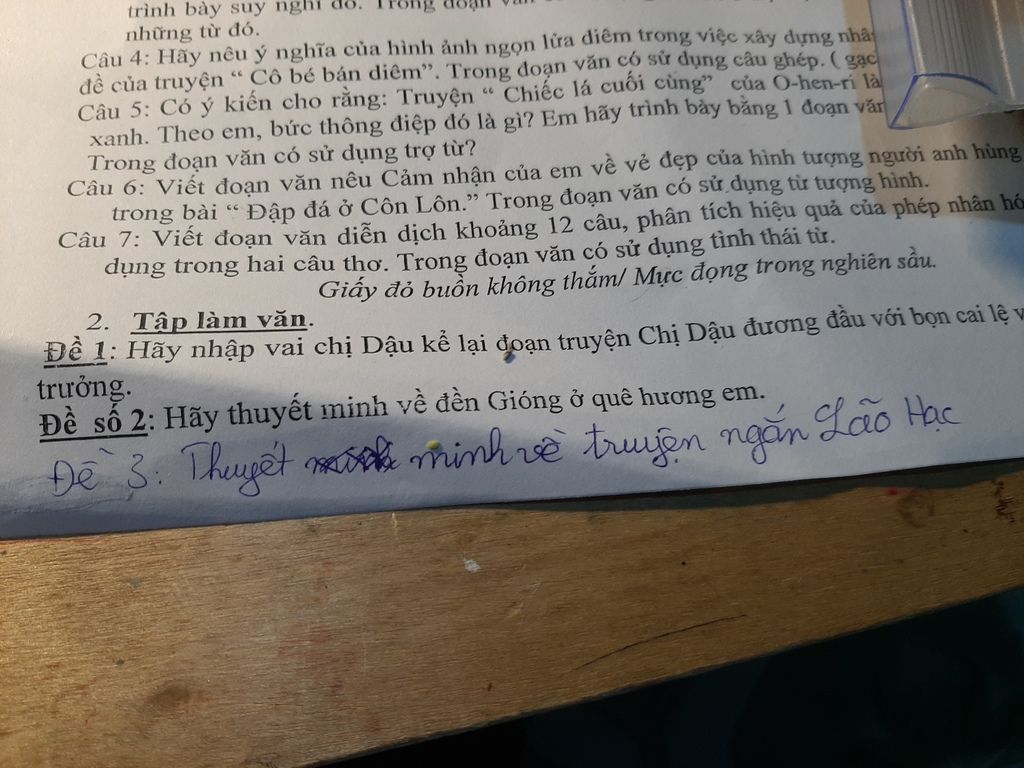 trình bày suy nghĩ đó. Trong đoạn văn
những từ đó.
Câu 4: Hãy nêu ý nghĩa của hình ảnh ngọn lửa diêm trong việc xây dựng
đề của truyện “ Cô bé bán diêm”. Trong đoạn văn có sử dụng câu ghép. ( gạc
Câu 5: Có ý kiến cho rằng: Truyện “ Chiếc lá cuối cùng” của O-hen-ri là
xanh. Theo em, bức thông điệp đó là gì? Em hãy trình bày bằng 1 đoạn văn
Trong đoạn văn có sử dụng trợ từ?
Câu 6: Viết đoạn văn nêu Cảm nhận của em về vẻ đẹp của hình tượng người anh hùng
trong bài “ Đập đá ở Côn Lôn.” Trong đoạn văn có sử dụng từ tượng hình.
Câu 7: Viết đoạn văn diễn dịch khoảng 12 câu, phân tích hiệu quả của phép nhân hó
dụng trong hai câu thơ. Trong đoạn văn có sử dụng tình thái từ.
Giấy đỏ buồn không thắm/ Mực đọng trong nghiên sầu.
2. Tập làm văn.
Đề 1: Hãy nhập vai chị Dậu kể lại đoạn truyện Chị Dậu đương đầu với bọn cai lệ v
trưởng.
Đề số 2: Hãy thuyết minh về đền Gióng ở quê hương em.
Đề 3: Thuyết minh về truyện ngắn Lão Hạc